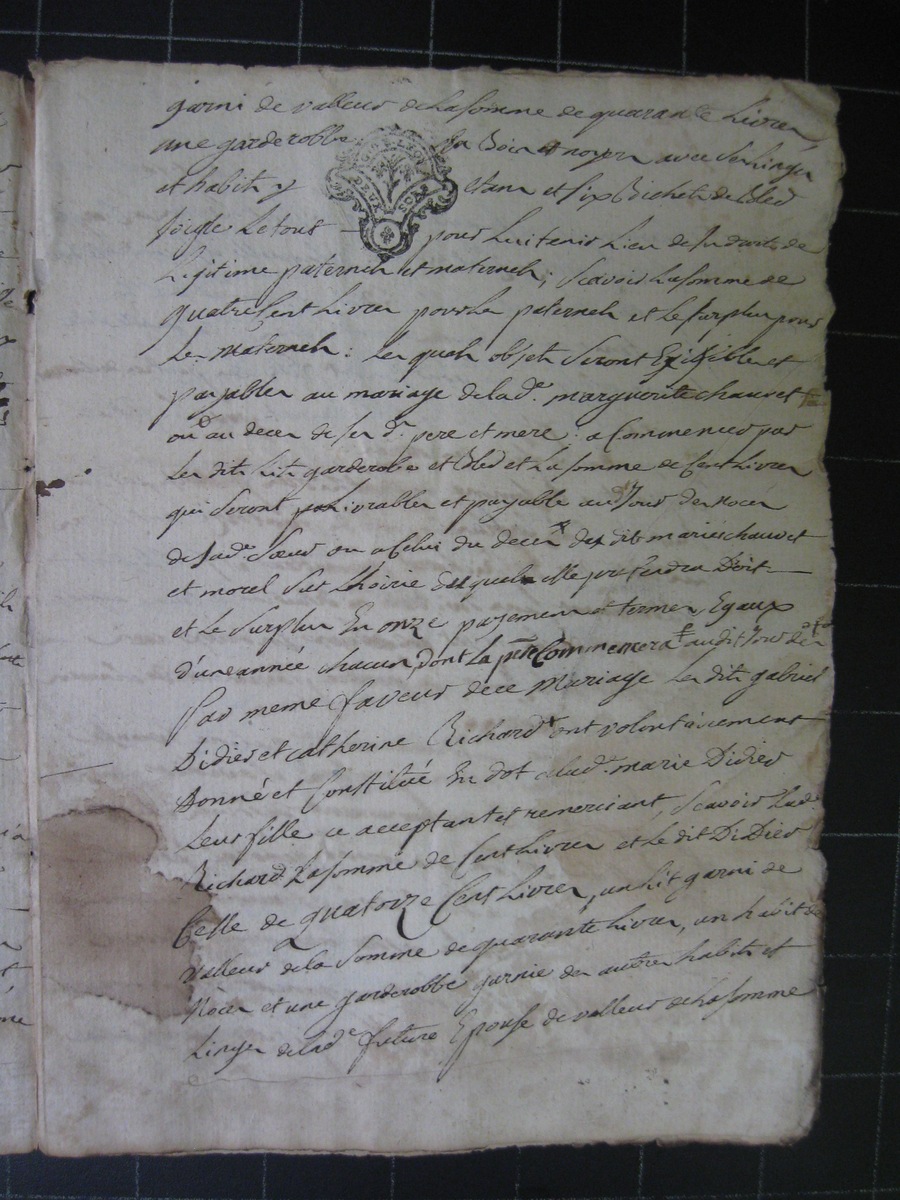 garni de valleur de la somme de quarante Livres
une garderobbe En Bois et noyer avec ses linges
et habits y Etans et six Bichets de Bled
soigle Le tout pour lui tenir Lieu de ses droits de
Légitime paternels et maternels; scavoir la somme de
quatre Cent Livres pour le paternels et le surplus pour
Les maternels: les quels objets seront Exigible et
payables au mariage de la de. marguerite chauvet
ou au deces de ses ds. pere et mere: a Commencer par
Les dits Lits garderobe et Bled et La somme de Cent Livres
qui seront livrables et payable aud Jour des noces
de sa de. soeur ou a Celui du deces des dits mariés chauvet
et moral sur l'hoirie Desquels elle pretendra Droit
et Le surplus En onze payemens et termes Egaux
d'une année chacun dont La pre Commencera audit Jour des
Par meme faveur de ce Mariage Les dits gabriel
Didier et catherine Richard ont volontairement
Donné et Constitué En dot a lad. marie Didier
Leur fille ce acceptant et remerciant, scavoir Lad.
Richard La somme de Cent Livres et Le dit Didier
Celle de quatorze Cent Livres, un lit garni de
valleur de la somme de quarante Livres, un habit de
Noces et une garderobbe garnie des autres habits et
Linges de lad. future Epouse de valleur de La somme